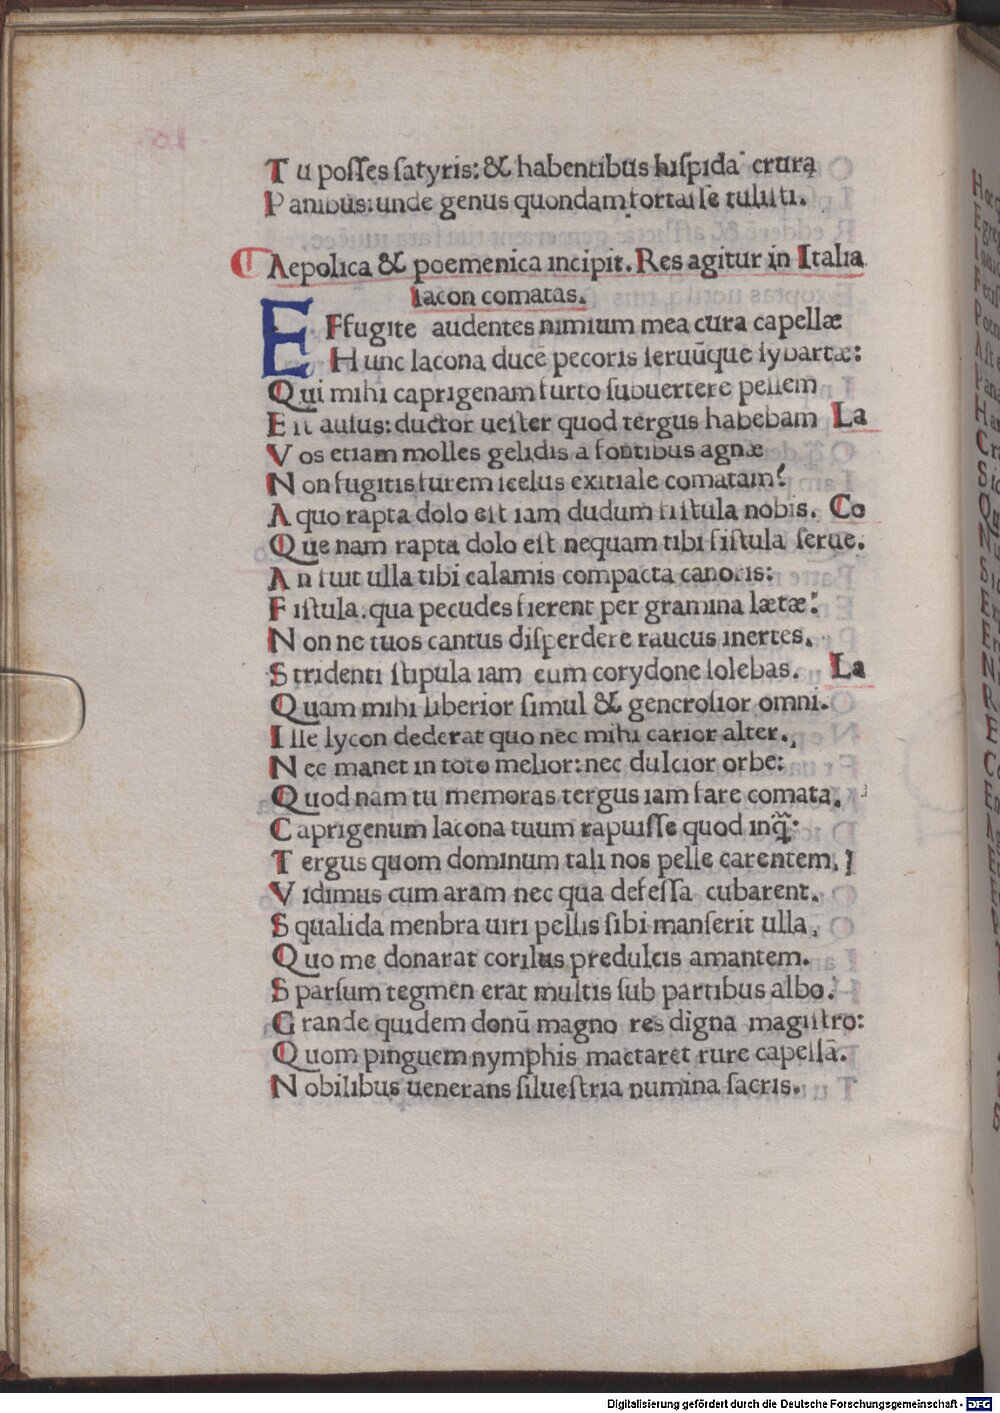 T u poſſes ſatyris: & habentibus hiſpida crura
P anibus: unde genus quondam fortaſſe tuliſti.
Aepolica & poemenica incipit. Res agitur in Italia
lacon comatas.
E Ffugite audentes nimium mea cura capellæ
H unc lacona ducē pecoris ſeruūque ſybartæ:
Q ui mihi caprigenam furto ſubuertere pellem
E ſt auſus: ductor ueſter quod tergus habebam La
V os etiam molles gelidis a fontibus agnæ
N on fugitis furem ſcelus exitiale comatam?
A quo rapta dolo eſt iam dudum fiſtula nobis. Co
Q ue nam rapta dolo eſt nequam tibi fiſtula ſerue.
A n fuit ulla tibi calamis compacta canoris:
F iſtula. qua pecudes fierent per gramina lætæ?
N on ne tuos cantus diſperdere raucus inertes.
S tridenti ſtipula iam cum corydone ſolebas. La
Q uam mihi liberior ſimul & generoſior omni.
I lle lycon dederat quo nec mihi carior alter.
N ec manet in toto melior: nec dulcior orbe:
Q uod nam tu memoras tergus iam fare comata.
C aprigenum lacona tuum rapuiſſe quod inq̃:
T ergus quom dominum tali nos pelle carentem.
V idimus cum aram nec qua defeſſa cubarent.
S qualida menbra uiri pellis ſibi manſerit ulla.
Q uo me donarat corilus predulcis amantem.
S parſum tegmen erat multis ſub partibus albo.
G rande quidem donū magno res digna magiſtro:
Q uom pinguem nymphis mactaret rure capellā.
N obilibus uenerans ſilueſtria numina ſacris.
Digitalisierung gefördert durch die Deutsche Forschungsgemeinschaft - DFG